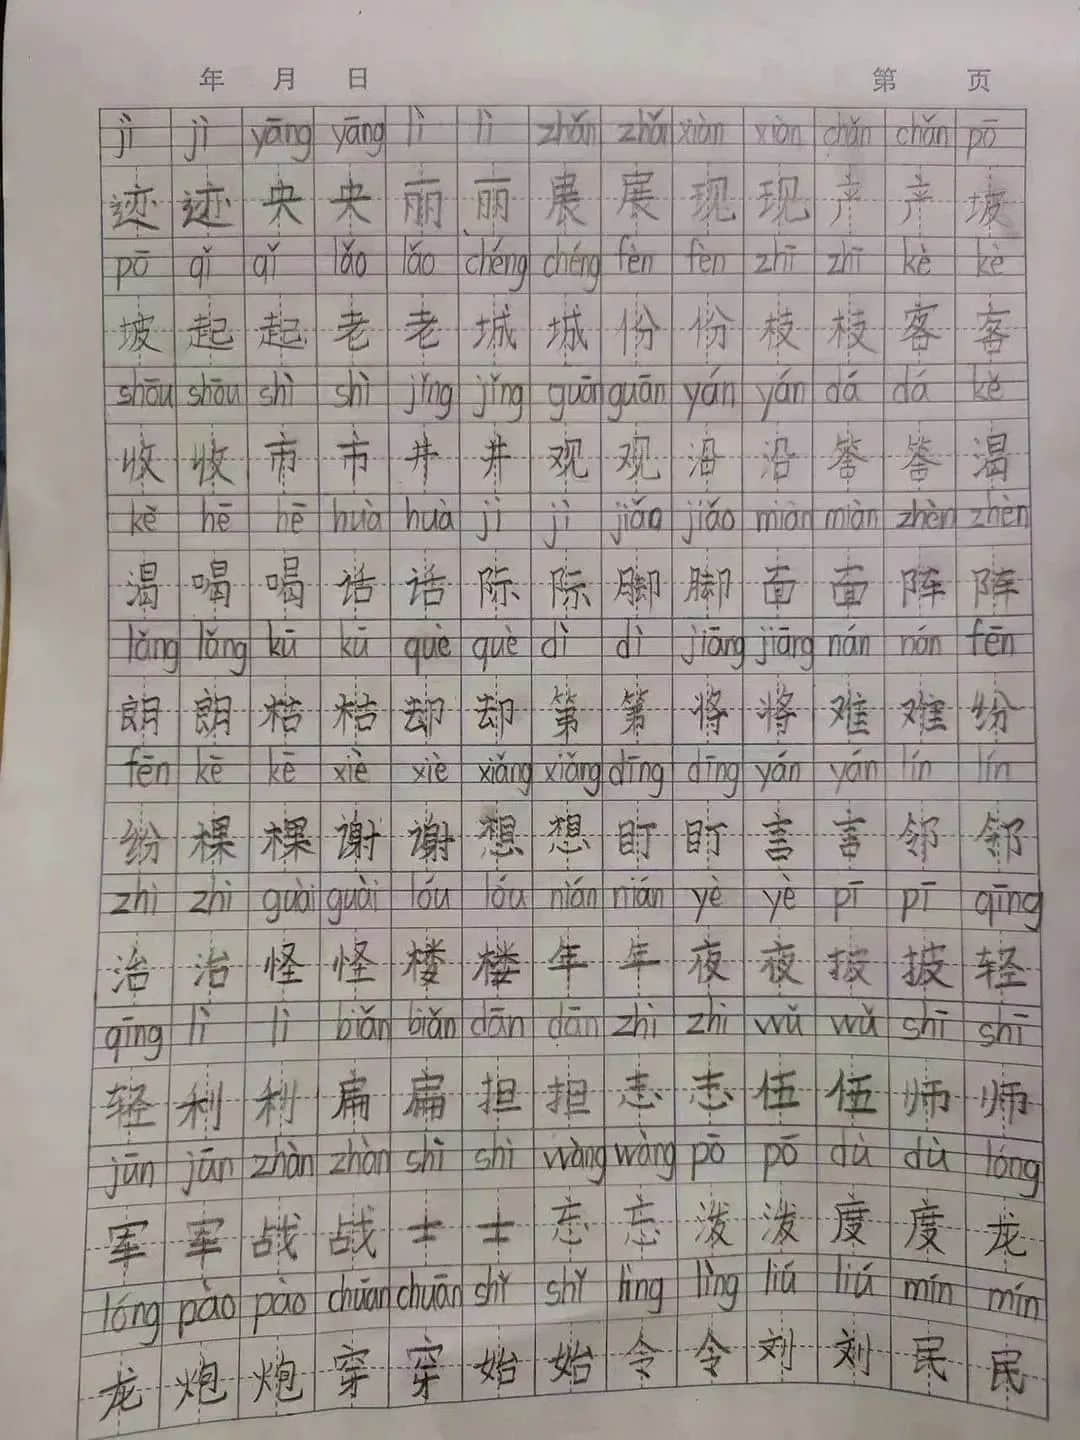 年 月 日 第 页
jì jì yāng yāng lì lì zhǎn zhǎn xiàn xiàn chǎn chǎn pō
迹 迹 央 央 丽 丽 展 展 现 现 产 产 坡
pō qǐ qǐ lǎo lǎo chéng chéng fèn fèn zhī zhī kè kè
坡 起 起 老 老 城 城 份 份 枝 枝 客 客
shōu shōu shì shì jǐng jǐng guān guān yán yán dá dá kě
收 收 市 市 井 井 观 观 沿 沿 答 答 渴
kě hē hē huà huà jì jì jiǎo jiǎo miàn miàn zhèn zhèn
渴 喝 喝 话 话 际 际 脚 脚 面 面 阵 阵
lǎng lǎng kū kū què què dì dì jiāng jiāng nán nán fēn
朗 朗 枯 枯 却 却 第 第 将 将 难 难 纷
fēn kē kē xiè xiè xiǎng xiǎng dīng dīng yán yán lín lín
纷 棵 棵 谢 谢 想 想 盯 盯 言 言 邻 邻
zhì zhì guài guài lóu lóu nián nián yè yè pī pī qīng
治 治 怪 怪 楼 楼 年 年 夜 夜 披 披 轻
qīng lì lì biǎn biǎn dān dān zhì zhì wǔ wǔ shī shī
轻 利 利 扁 扁 担 担 志 志 伍 伍 师 师
jūn jūn zhàn zhàn shì shì wàng wàng pō pō dù dù lóng
军 军 战 战 士 士 忘 忘 泼 泼 度 度 龙
lóng pào pào chuān chuān shǐ shǐ lìng lìng liú liú mín mín
龙 炮 炮 穿 穿 始 始 令 令 刘 刘 民 民